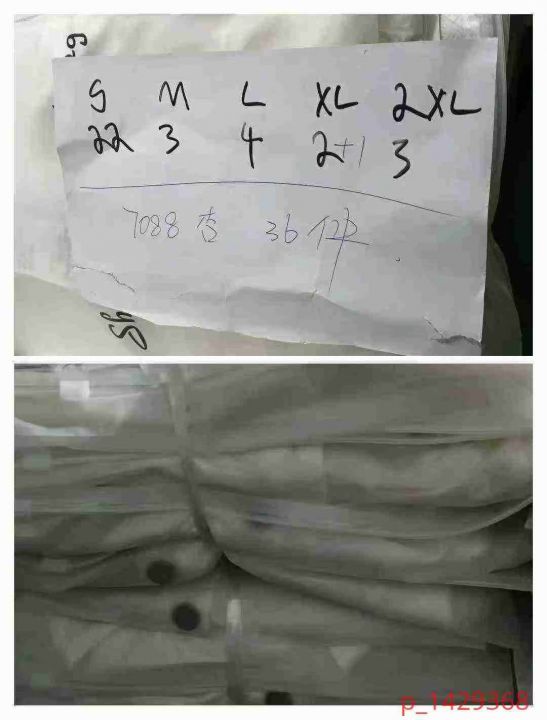 S M L XL 2XL
22 3 4 2+1 3
7088杏 36件
p_1429368